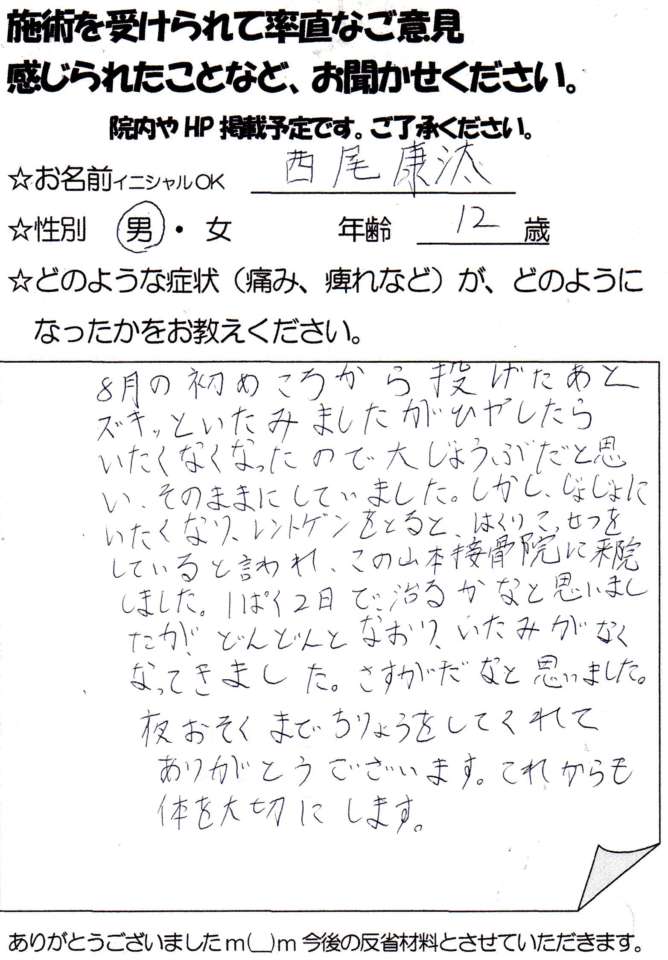 施術を受けられて率直なご意見
感じられたことなど、お聞かせください。
院内やHP掲載予定です。ご了承ください。
☆お名前イニシャルOK 西尾康汰
☆性別 男・女 年齢 12 歳
☆どのような症状（痛み、痺れなど）が、どのように
なったかをお教えください。
8月の初めころから投げたあと
ズキッといたみましたがひやしたら
いたくなくなったので大じょうぶだと思
い、そのままにしていました。しかし、じょじょに
いたくなり、レントゲンをとると、はくりこっせつを
していると言われ、この山本接骨院に来院
しました。1ぱく2日で、治るかなと思いまし
たが、どんどんとなおり、いたみがなく
なってきました。さすがだなと思いました。
夜おそくまでちりょうをしてくれて
ありがとうございます。これからも
体を大切にします。
ありがとうございましたm(__)m今後の反省材料とさせていただきます。